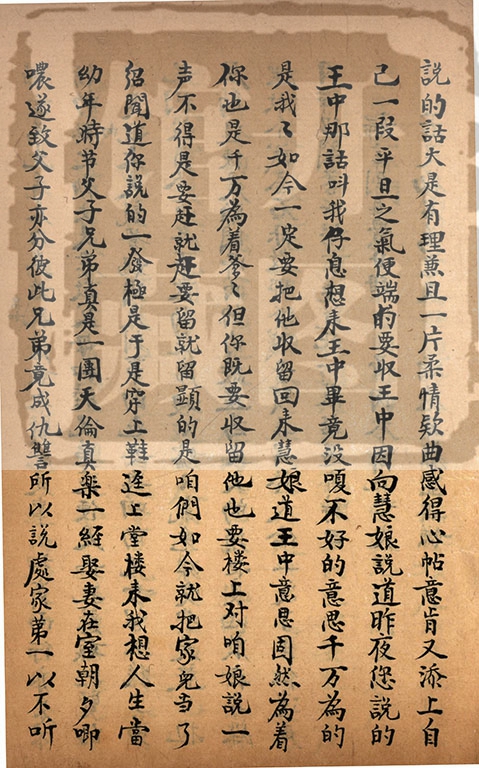 說的話大是有理兼且一片柔情欵曲感得心帖意肯又添上自
己一段平旦之氣便端的要収王中因向慧娘說道昨夜您說的
王中那話呌我仔息想来王中畢竟没嗄不好的意思千万為的
是我〻如今一定要把他収留回来慧娘道王中意思固然為着
你也是千万為着爹〻但你既要収留他也要楼上对咱娘說一
声不得是要赶就赶要留就留顕的是咱們如今就把家児当了
紹聞道你說的一發極是于是穿上鞋逕上堂楼来我想人生當
幼年時节父子兄弟真是一團天倫真楽一経娶妻在室朝夕唧
噥遂致父子亦分彼此兄弟竟成仇讐所以說處家第一以不听